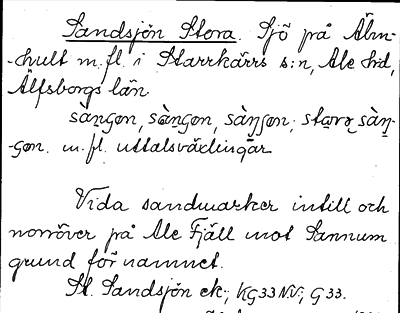 Sandsjön Stora. Sjö på Älm-
-hult m.fl. i Starrkärrs s:n, Ale hd,
Älfsborgs län
sàn̡ɡon, sàn̡ɡon, sàŋʃon; stᴏra sàn̡-
-ɡon. m.fl. uttalsväxlingar
Vida sandmarker intill och
norröver på Ale Fjäll mot Sannum
grund för namnet.
St. Sandsjön ek; KG33NV; G33.